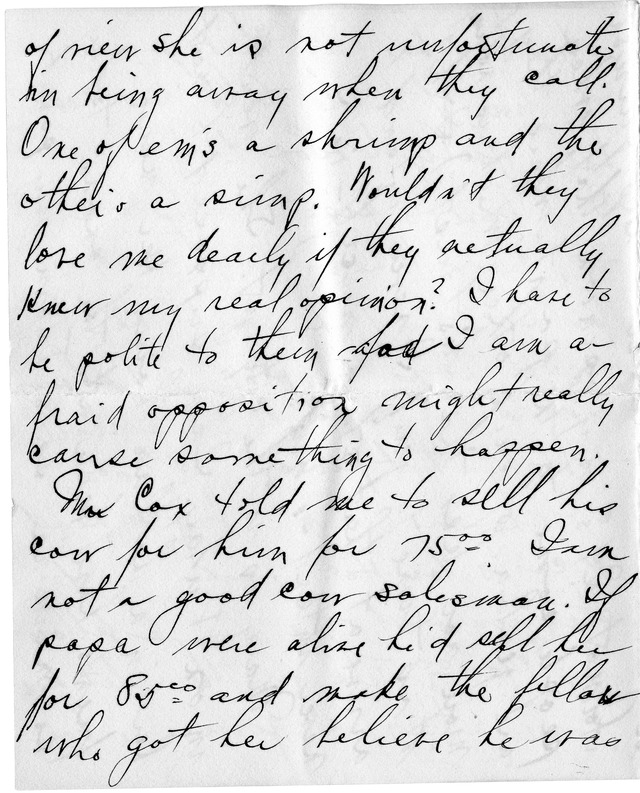 of view she is not unfortunate
in being away when they call.
One of em's a shrimp and the
other's a simp. Wouldn't they
love me dearly if they actually
knew my real opinion? I have to
be polite to them I am a-
fraid opposition might really
cause something to happen.
Mr Cox told me to sell his
cow for him for 75.00 I am
not a good cow salesman. If
papa were alive he'd sell her
for 85.00 and make the fellow
who got her believe he was